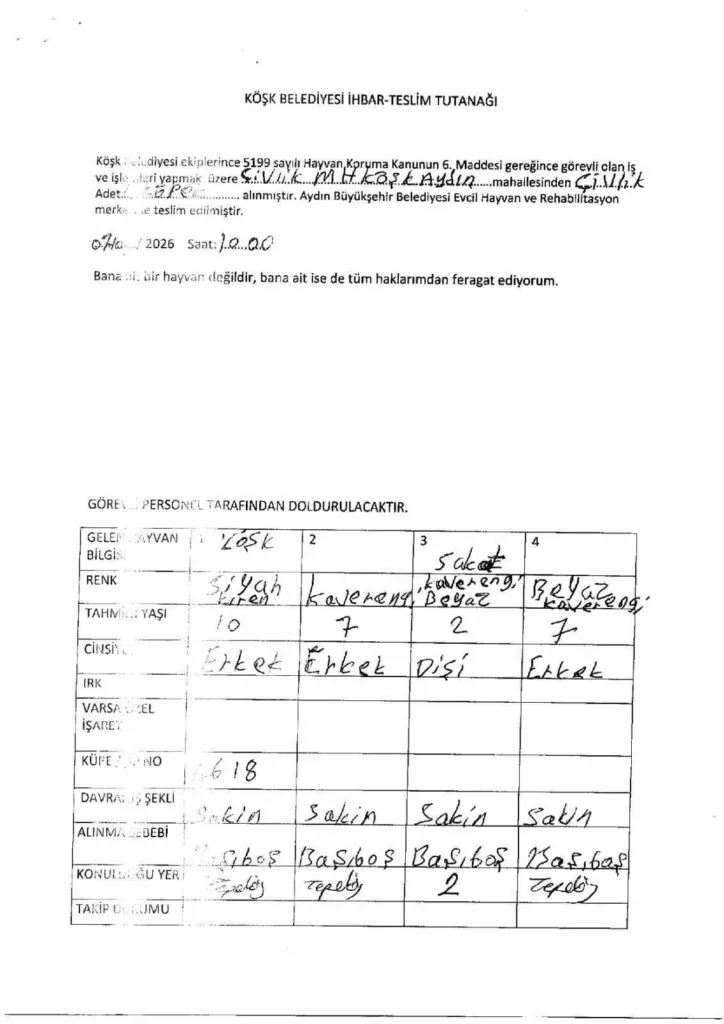 KÖŞK BELEDİYESİ İHBAR-TESLİM TUTANAĞI
Köşk Belediyesi ekiplerince 5199 sayılı Hayvan Koruma Kanunun 6. Maddesi gereğince görevli olan iş
ve işlemleri yapmak üzere ÇİVLİK MH KÖŞK AYDIN......mahallesinden Çivlik
Adet. .............. alınmıştır. Aydın Büyükşehir Belediyesi Evcil Hayvan ve Rehabilitasyon
merkezine teslim edilmiştir.
/ 2026 Saat: 10.00
Bana ait bir hayvan değildir, bana ait ise de tüm haklarımdan feragat ediyorum.
GÖREVLİ PERSONEL TARAFINDAN DOLDURULACAKTIR.
GELEN HAYVAN BİLGİSİ 1 KÖŞK 2 3 Sakat 4
RENK Siyah kaverengi kaverengi Beyaz Beyaz kaverengi
TAHMİNİ YAŞI 10 7 2 7
CİNSİYETİ Erkek Erkek Dişi Erkek
IRK
VARSA ÖZEL İŞARET
KÜPE NO 618
DAVRANIŞ ŞEKLİ Sakin Sakin Sakin Sakin
ALINMA SEBEBİ Başıboş Başıboş Başıboş Başıboş
KONULDUĞU YER Tepeköy Tepeköy 2 Tepeköy
TAKİP DURUMU